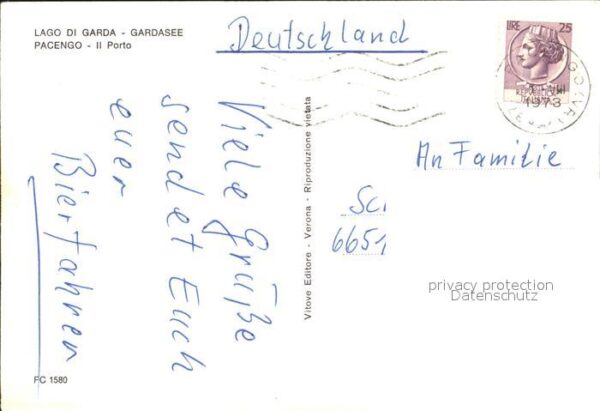 LAGO DI GARDA - GARDASEE
PACENGO - Il Porto
Deutschland
LIRE 25
1973
Viele Grüße
sendet Euch
euer
Bierfahrer
Vitove Editore - Verona - Riproduzione vietata
An Familie
Sc
6651
privacy protection
Datenschutz
FC 1580